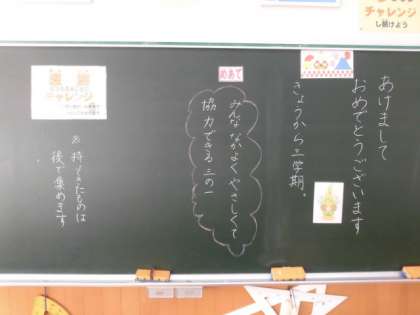 あけまして
おめでとうございます
きょうから三学期。
めあて
みんななかよくやさしくて
協力できる三の一
チャレンジ
※持ってきたものは
後で集めます
チャレンジ
し続けよう